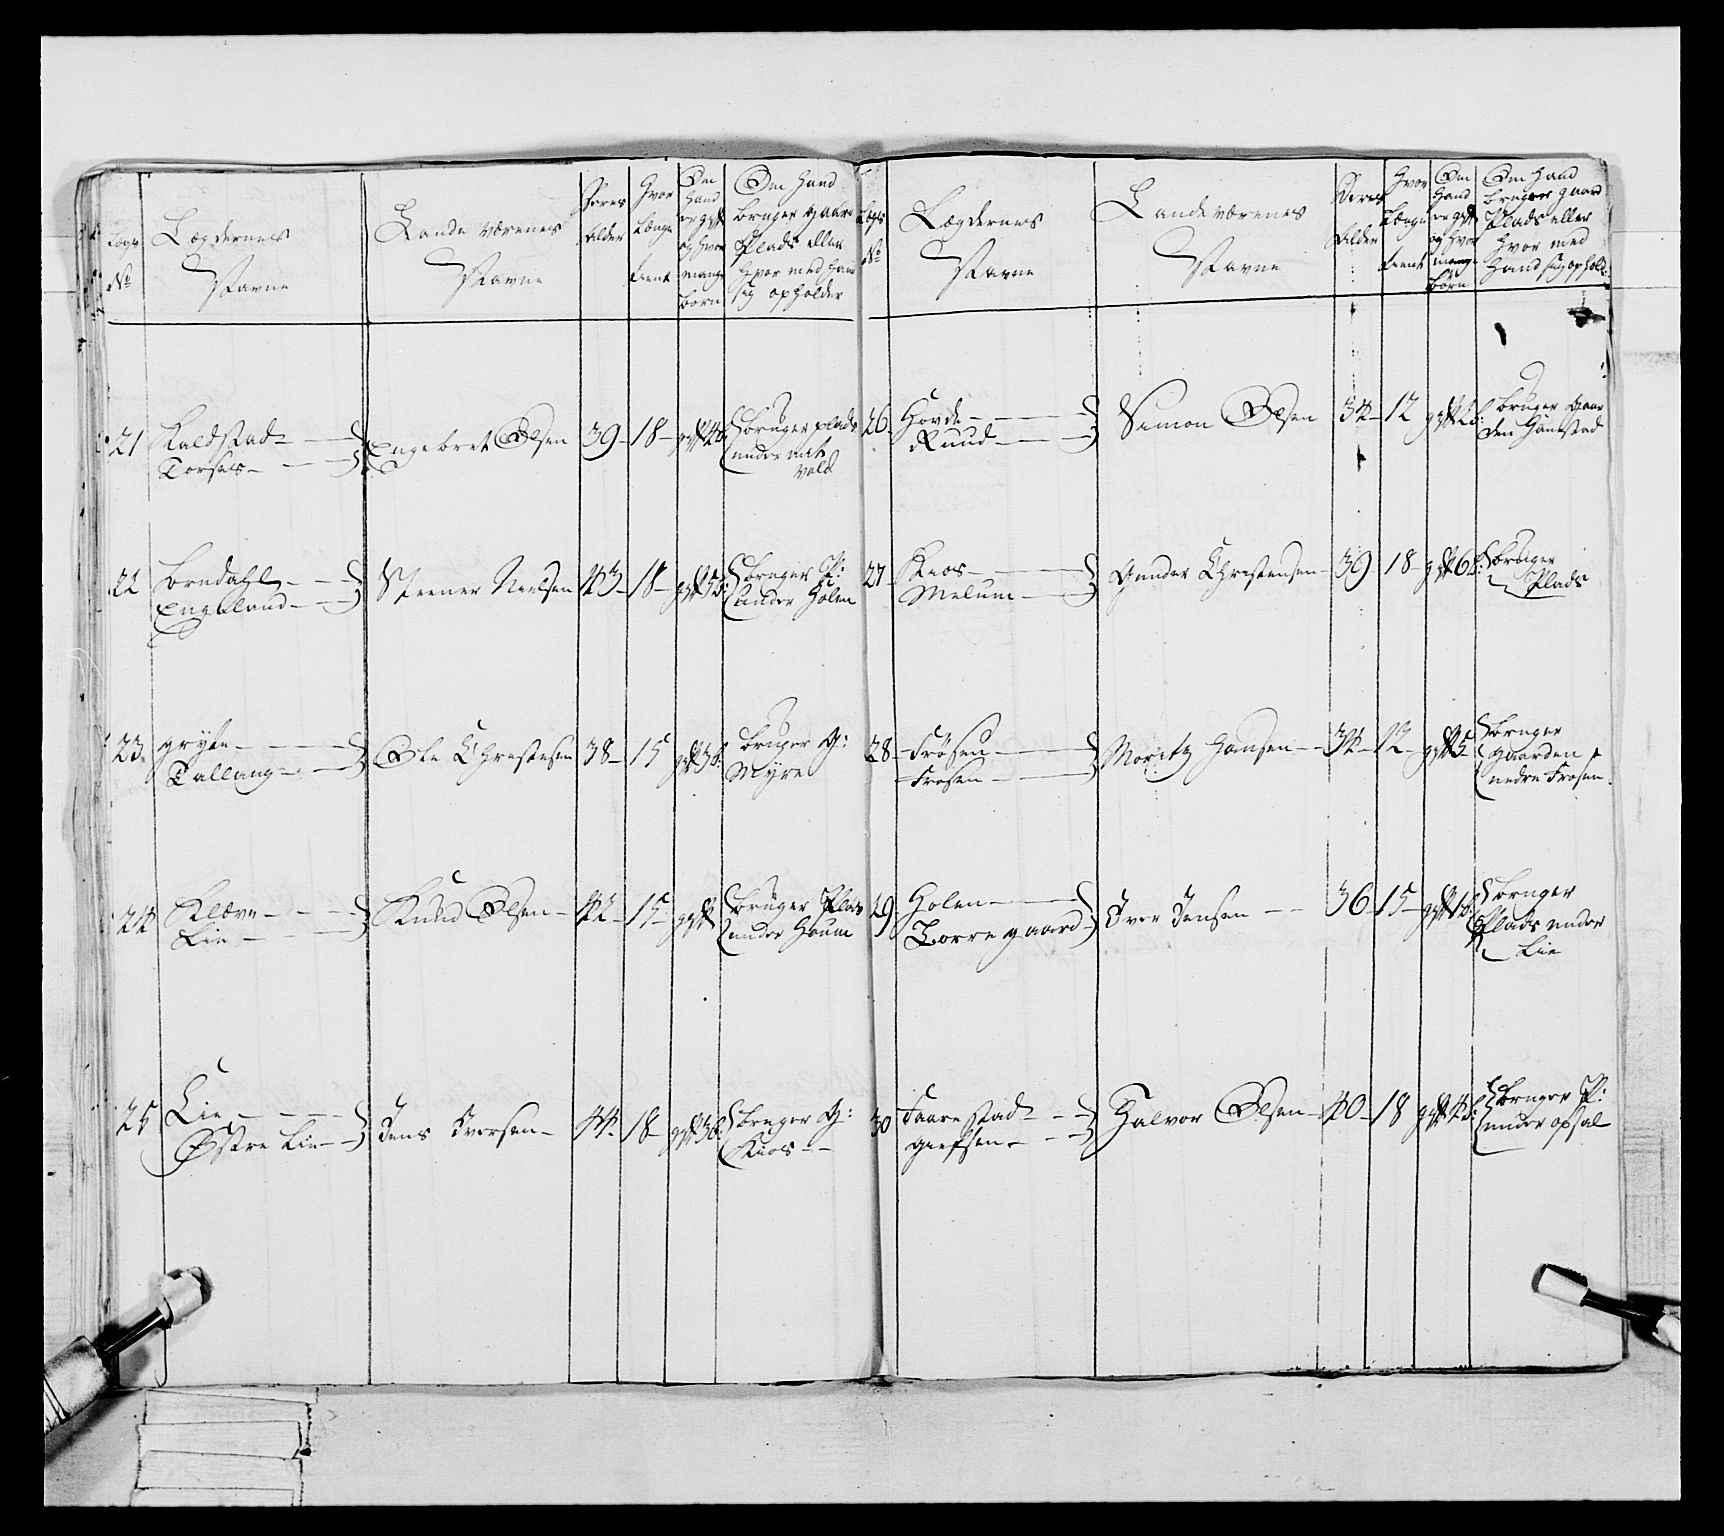 Lægs
No
Lægdernes
Navne
Landeværenes
Navne
Deres
Alder
Hvor
Længe
tient
Om
Hand
er gift
og hvor
mange
børn
Om Hand
bruger gaard
Plads eller
hvor med hand
sig opholder
21
Kaldstad
Torsaas
Engebret Olsen
39
18
gift 4 b:
bruger plads
under
22
Bredahl
Engeland
Steener Nielsen
43
18
gift 5 b:
bruger P:
under Holen
23
gryte
Tallaug
Ole Christensen
38
15
gift 3 b:
bruger G:
Myre
24
Klævn
Lie
Knud Olsen
42
15
gift
bruger Plads
under Houm
25
Lie
Østre Lie
Jens Iversen
44
18
gift 3 b:
bruger G:
Kios
Lægs
No
Lægdernes
Navne
Landeværenes
Navne
Deres
Alder
Hvor
Længe
tient
Om
Hand
er gift
og hvor
mange
børn
Om Hand
bruger gaard
Plads eller
hvor med
Hand sig opholder
26
Hovde
Ruud
Simon Olsen
34
12
gift 2 b:
bruger Gaar
den Hamstad
27
Kios
Melum
Gunder Christensen
39
18
gift 6 b:
bruger
Plads
28
Frøsen
Frosen
Moritz Hansen
34
12
gift 5
bruger
gaarden
nedre Frosen
29
Holen
Borregaard
Iver Jensen
36
15
gift 1 b:
bruger
Plads under
Lie
30
Faarestad
giefsen
Halvor Olsen
40
18
gift 4 b:
bruger P:
under opsal